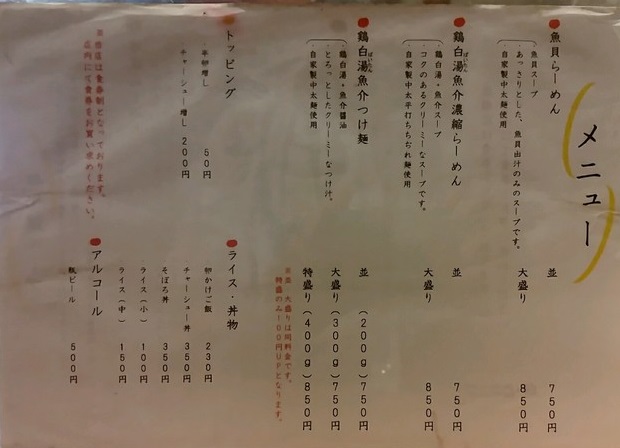 メニュー
魚貝らーめん
魚貝スープ
あっさりとした、魚貝出汁のみのスープです。
自家製中太麺使用
並 750円
大盛り 850円
鶏白湯魚介濃縮らーめん
ぱいたん
鶏白湯・魚介スープ
コクのあるクリーミーなスープです。
自家製中太平打ちちぢれ麺使用
並 750円
大盛り 850円
鶏白湯魚介つけ麺
ぱいたん
鶏白湯・魚介醤油
とろっとしたクリーミーなつけ汁。
自家製中太麺使用
並 (200g) 750円
大盛り (300g) 750円
特盛り (400g) 850円
※並、大盛りは同料金です。
特盛のみ100円UPとなります。
トッピング
半卵増し 50円
チャーシュー増し 200円
ライス・丼物
卵かけご飯 230円
チャーシュー丼 350円
そぼろ丼 350円
ライス(小) 100円
ライス(中) 150円
アルコール
瓶ビール 500円
※当店は食券制となっております。
店内にて食券をお買い求めください。